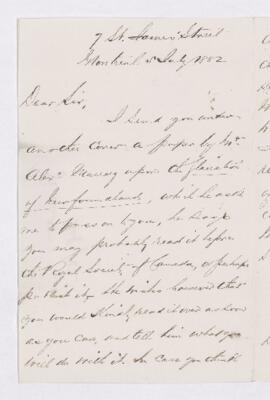 7 St. James Street
Montreal 5 July 1882
Dear Sir,
I send you under
another cover a paper by Mr
Alexr Murray upon the Glaciation
of Newfoundland, which he asks
me to pass on to you, he says
you may probably read it before
the Royal Society of Canada, or perhaps
publish it. He wishes however that
you would kindly read it over as soon
as you can, and tell him what you
will do with it. In case you think